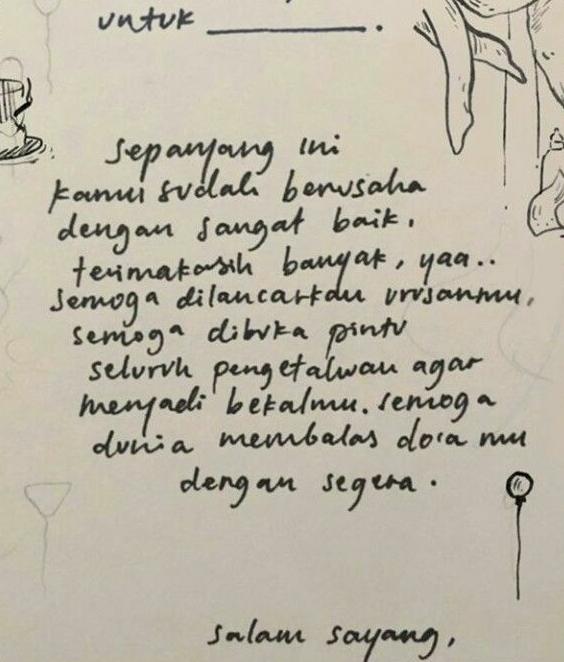 untuk ________.
sepanjang ini
kamu sudah berusaha
dengan sangat baik.
terimakasih banyak, yaa..
semoga dilancarkan urusanmu,
semoga dibuka pintu
seluruh pengetahuan agar
menjadi bekalmu. semoga
dunia membalas do'a mu
dengan segera.
salam sayang,